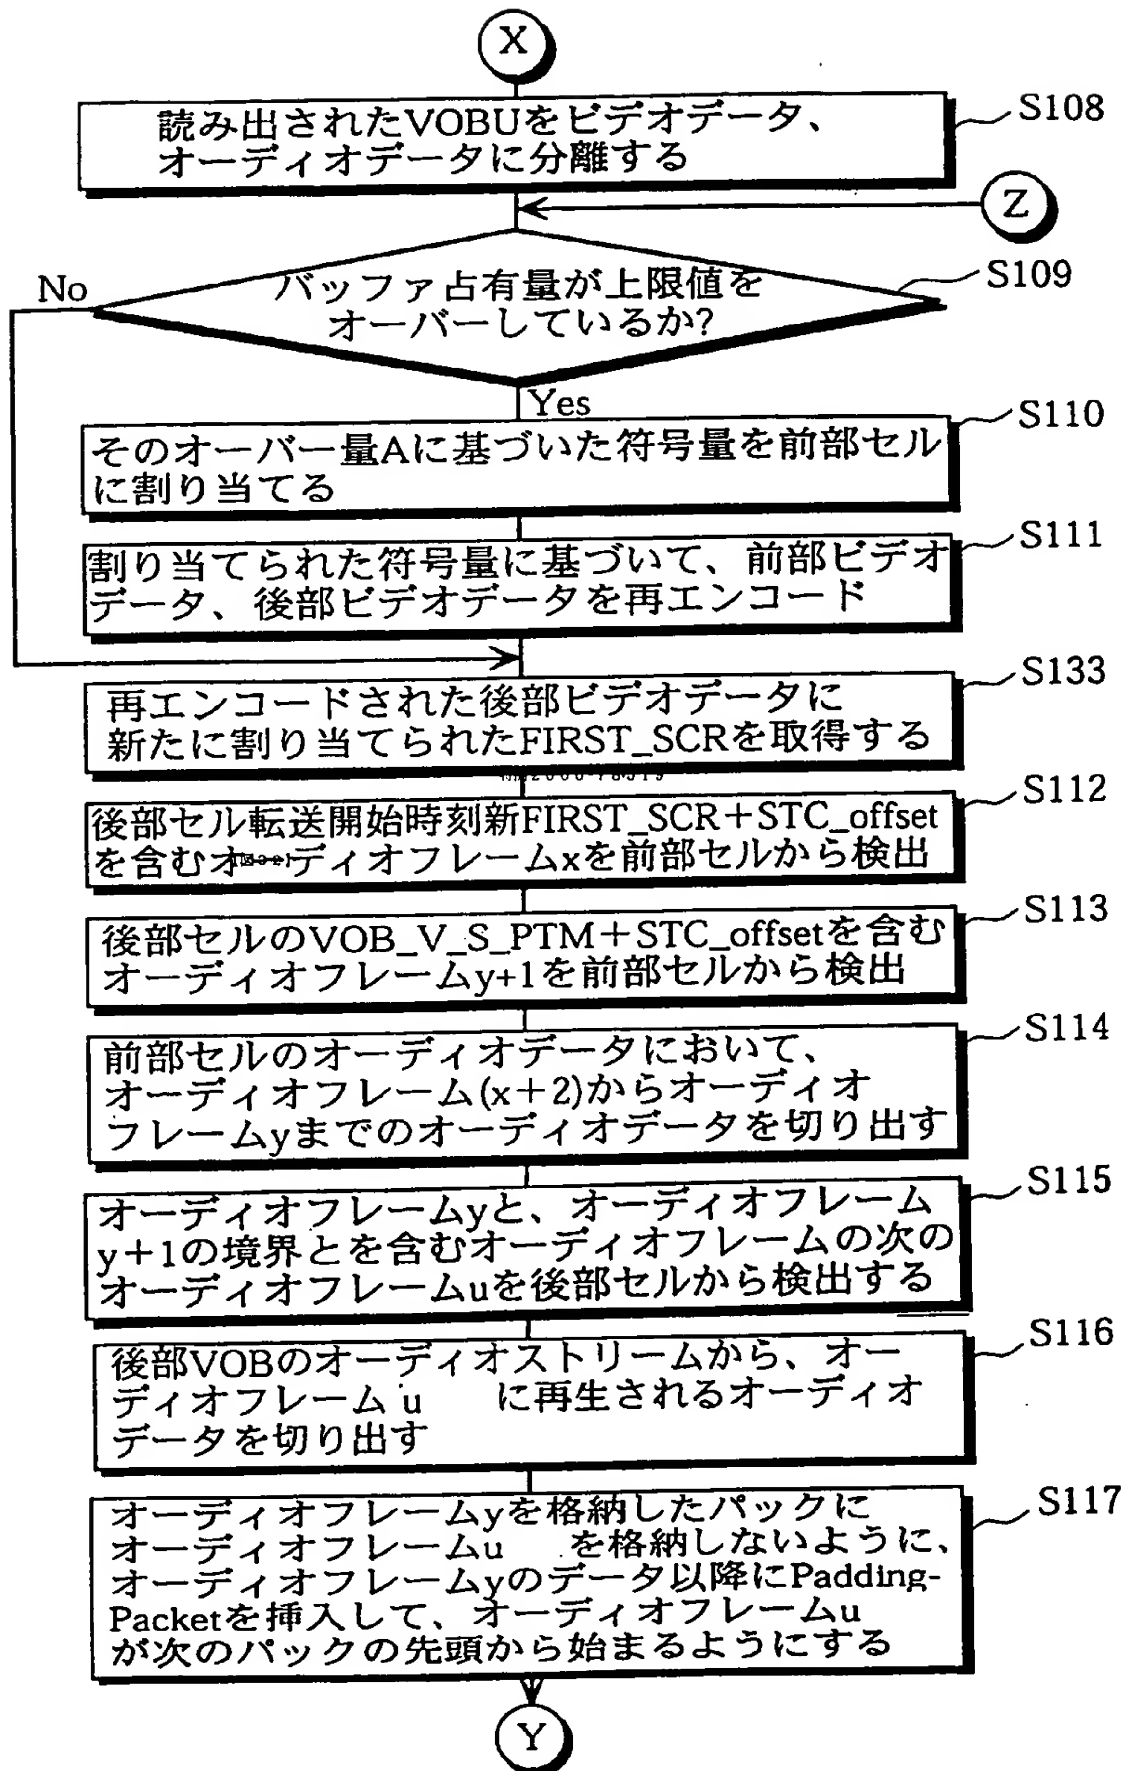 X
読み出されたVOBUをビデオデータ、
オーディオデータに分離する
S108
Z
バッファ占有量が上限値を
オーバーしているか?
S109
No
Yes
そのオーバー量Aに基づいた符号量を前部セル
に割り当てる
S110
割り当てられた符号量に基づいて、前部ビデオ
データ、後部ビデオデータを再エンコード
S111
再エンコードされた後部ビデオデータに
新たに割り当てられたFIRST_SCRを取得する
S133
後部セル転送開始時刻新FIRST_SCR+STC_offset
を含むオーディオフレームxを前部セルから検出
S112
後部セルのVOB_V_S_PTM+STC_offsetを含む
オーディオフレームy+1を前部セルから検出
S113
前部セルのオーディオデータにおいて、
オーディオフレーム(x+2)からオーディオ
フレームyまでのオーディオデータを切り出す
S114
オーディオフレームyと、オーディオフレーム
y+1の境界とを含むオーディオフレームの次の
オーディオフレームuを後部セルから検出する
S115
後部VOBのオーディオストリームから、オー
ディオフレーム u に再生されるオーディオ
データを切り出す
S116
オーディオフレームyを格納したパックに
オーディオフレームu を格納しないように、
オーディオフレームyのデータ以降にPadding-
Packetを挿入して、オーディオフレームu
が次のパックの先頭から始まるようにする
S117
Y